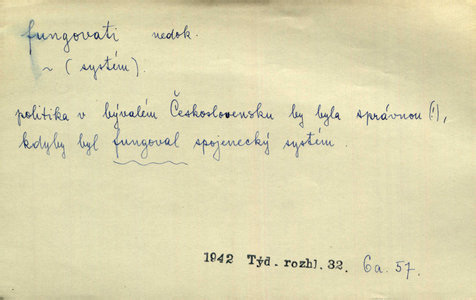 fungovati nedok.
~ (systém).
politika v bývalém Československu by byla správnou (!),
kdyby byl fungoval spojenecký systém.
1942 Týd. rozhl. 32. 6a. 57.